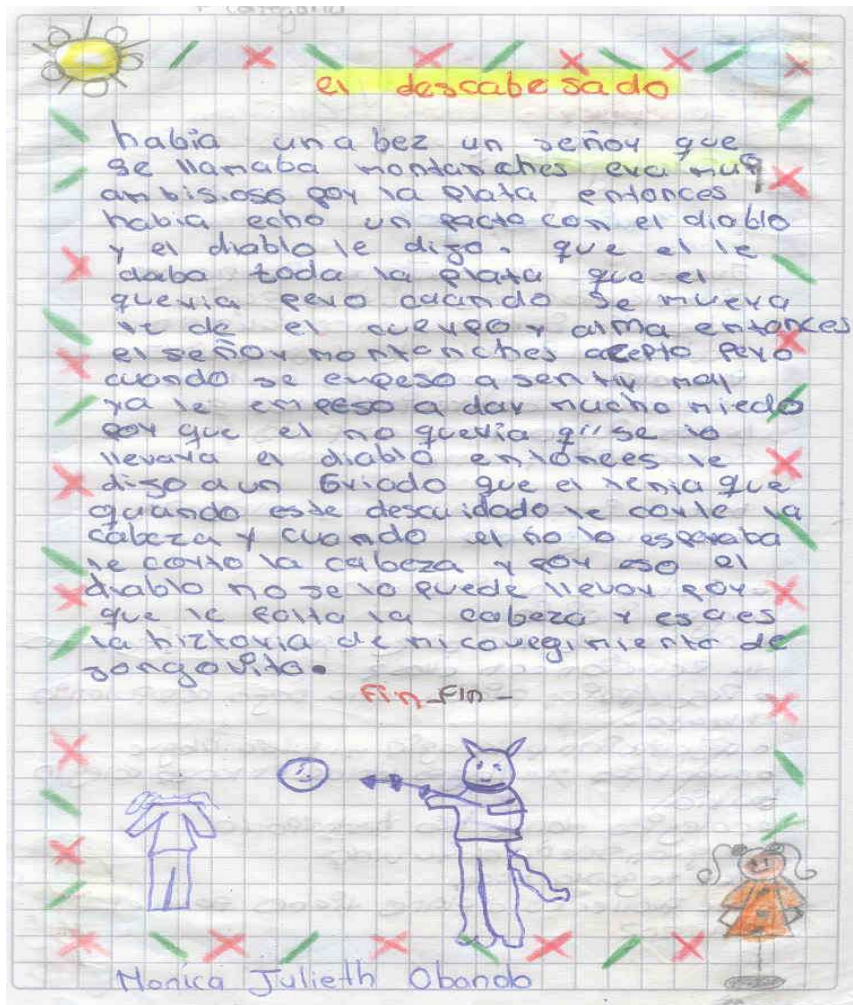 el descabesado
habia una bez un señor que
se llamaba montanches era muy
ambisioso por la plata entonces
habia echo un pacto con el diablo
y el diablo le dijo. que el le
daba toda la plata que el
queria pero cuando se muera
le de el cuerpo y alma entonces
el señor montanches acepto pero
cuando se enpeso a sentir mal
ya le empeso a dar mucho miedo
por que el no queria q" se lo
llevara el diablo entonces le
dijo a un Criado que el tenia que
quando este descuidado le corte la
cabeza y cuando el no lo esperaba
le corto la cabeza y por eso el
diablo no se lo puede llevar por
que le falta la cabeza y esa es
la hiztoria de mi coregimiento de
jongovito.
Fin_FIN-
Monica Julieth Obando